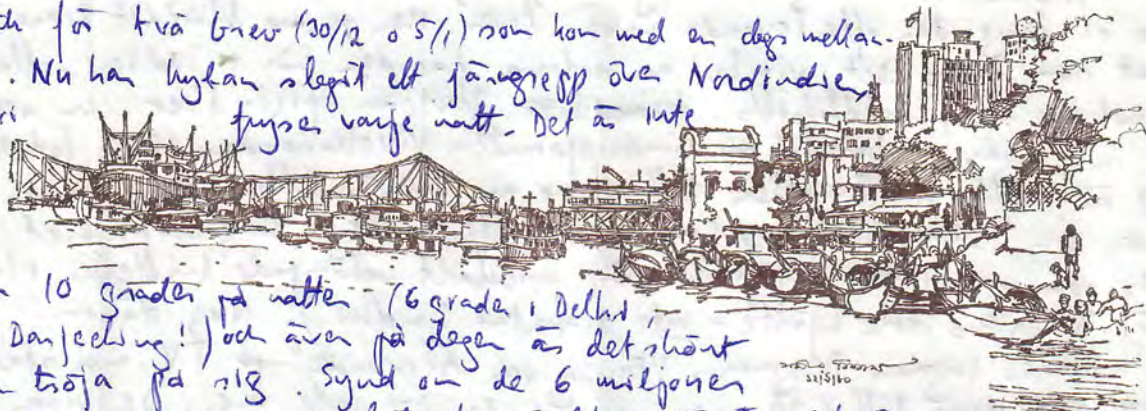 för två brev (30/12 o 5/1) som kom med en dags mellan-
. Nu har kylan slagit ett järngrepp över Nordindien,
fryser varje natt. Det är inte
10 grader på natten (6 grader i Delhi,
Darjeeling!) och även på dagen är det skönt
tröja på sig. Synd om de 6 miljoner